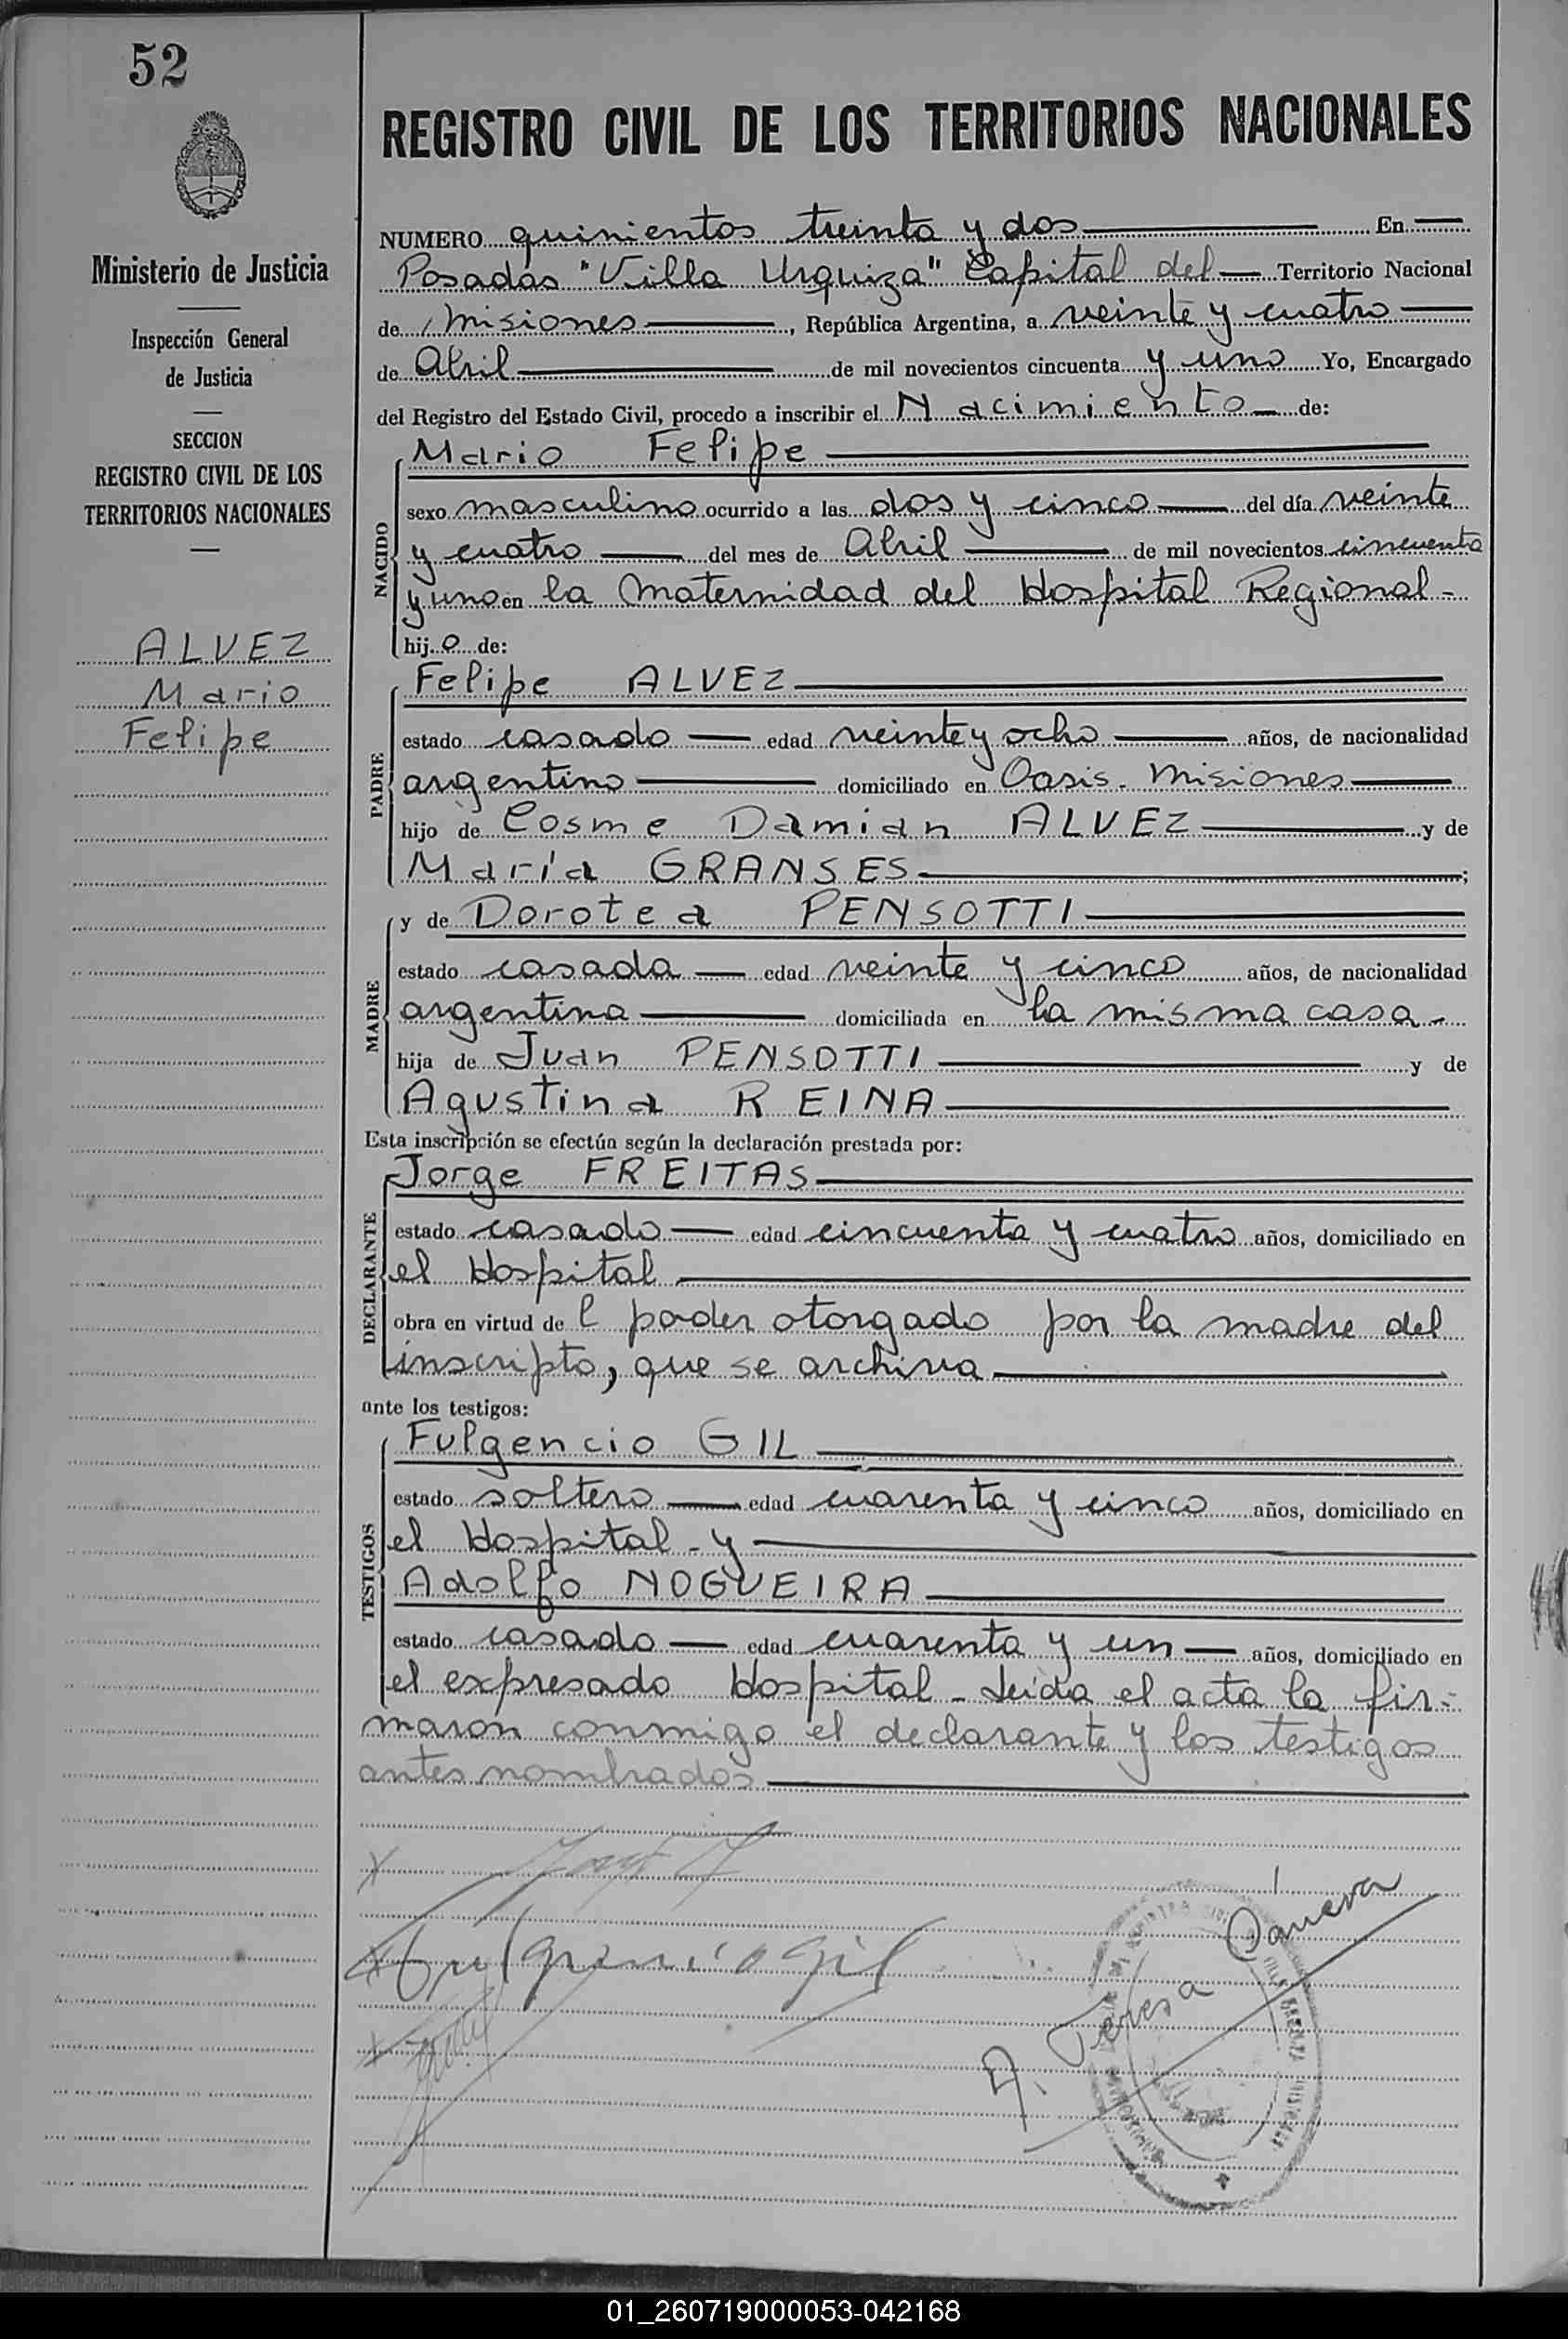 52
Ministerio de Justicia
Inspección General
de Justicia
SECCION
REGISTRO CIVIL DE LOS
TERRITORIOS NACIONALES
ALVEZ
Mario
Felipe
REGISTRO CIVIL DE LOS TERRITORIOS NACIONALES
NUMERO quinientos treinta y dos En
Posadas "Villa Urquiza" Capital del Territorio Nacional
de Misiones, República Argentina, a veinte y cuatro
de Abril de mil novecientos cincuenta y uno Yo, Encargado
del Registro del Estado Civil, procedo a inscribir el Nacimiento de:
Mario Felipe
NACIDO
sexo masculino ocurrido a las dos y cinco del día veinte
y cuatro del mes de Abril de mil novecientos cincuenta
y uno en la Maternidad del Hospital Regional-
hijo de:
Felipe ALVEZ
PADRE
estado casado edad veinte y ocho años, de nacionalidad
argentino domiciliado en Oasis- Misiones
hijo de Cosme Damian ALVEZ y de
María GRANSES;
y de Dorotea PENSOTTI
MADRE
estado casada edad veinte y cinco años, de nacionalidad
argentina domiciliada en la misma casa-
hija de Juan PENSOTTI y de
Agustina REINA
Esta inscripción se efectúa según la declaración prestada por:
Jorge FREITAS
DECLARANTE
estado casado edad cincuenta y cuatro años, domiciliado en
el Hospital
obra en virtud del poder otorgado por la madre del
inscripto, que se archiva
ante los testigos:
Fulgencio GIL
TESTIGOS
estado soltero edad cuarenta y cinco años, domiciliado en
el Hospital - y
Adolfo NOGUEIRA
estado casado edad cuarenta y un años, domiciliado en
el expresado Hospital - Leída el acta la fir-
maron conmigo el declarante y los testigos
antes nombrados
Fulgencio Gil
A. Teresa Cáneva
01_260719000053-042168